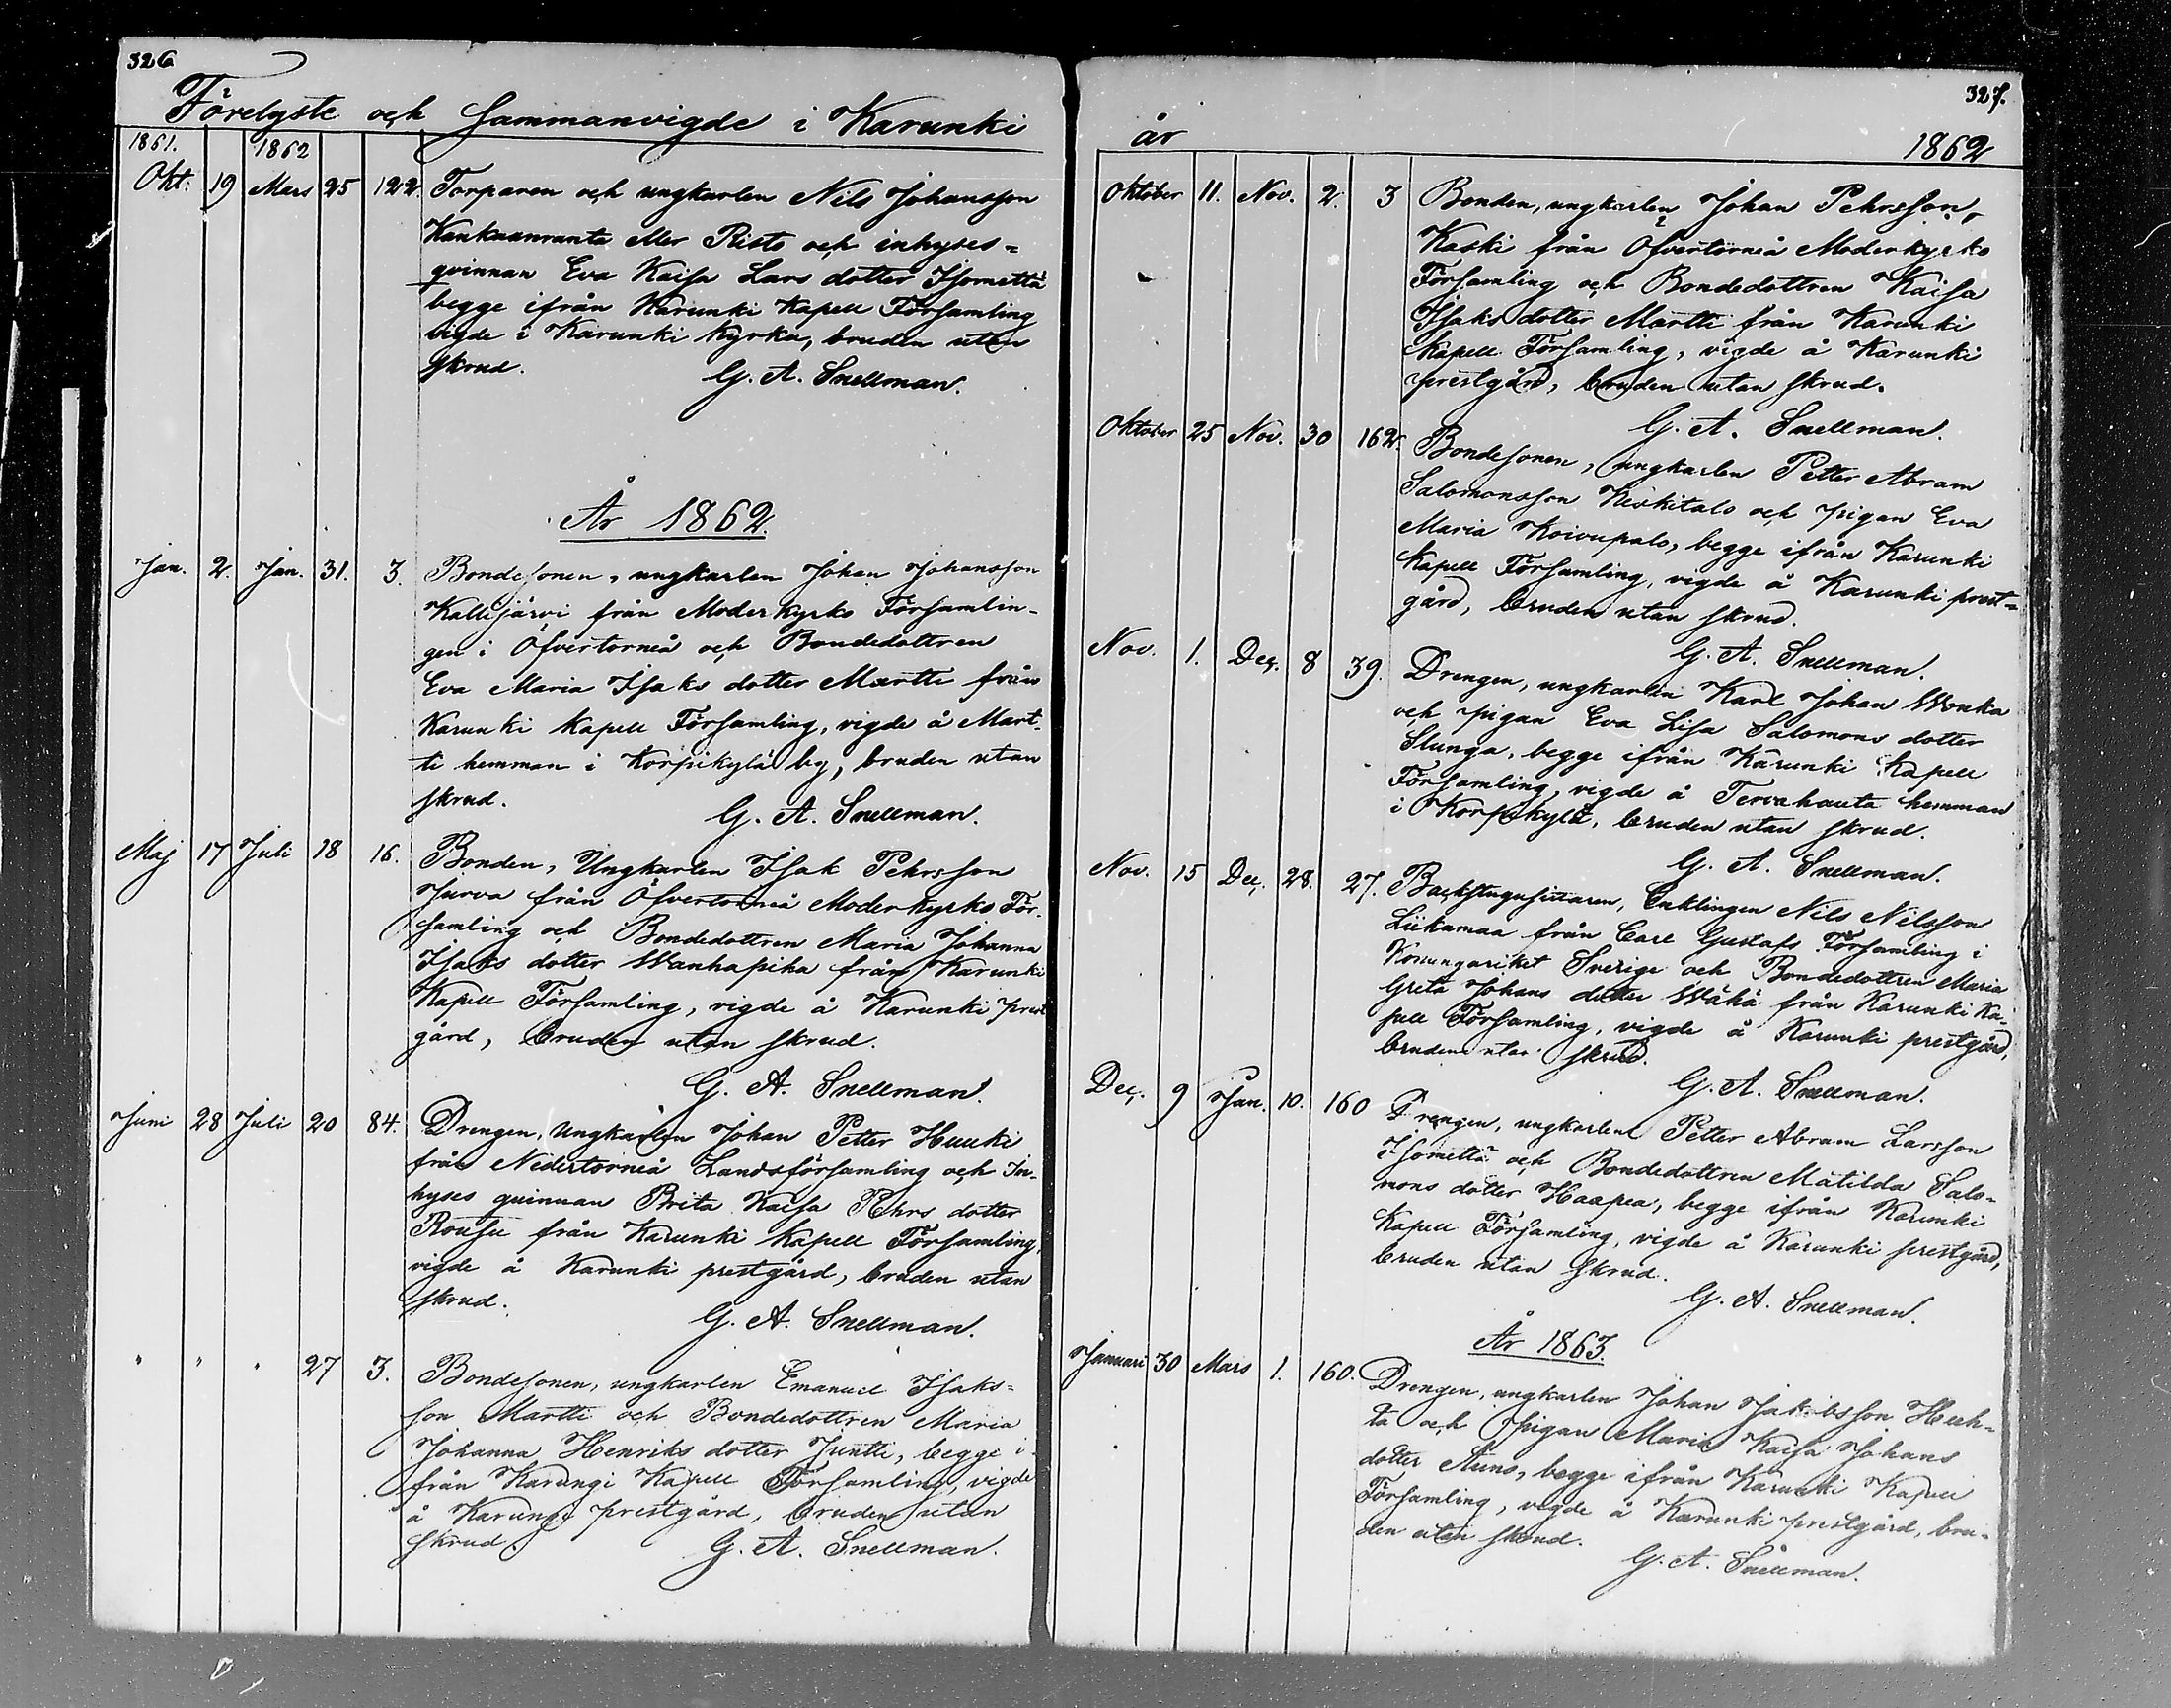 326
Förelyste och Sammanvigde i Karunki
1861. 1862
Okt: 19 Mars 25 122. Torparen och ungkarlen Nils Johansson
Kankaanranta eller Risto och inhyses=
qvinnan Eva Kaisa Lars dotter Isometta
begge ifrån Karunki Kapell Församling
vigde i Karunki Kyrka, bruden utan
skrud. G. A. Snellman.
År 1862.
Jan. 2. Jan. 31. 3. Bondesonen, ungkarlen Johan Johansson
Kallijärvi från Moderkyrko Församlin-
gen i Öfvertorneå och Bondedottren
Eva Maria Isaks dotter Martti från
Karunki Kapell Församling, vigde å Mart-
ti hemman i Korpikylä by, bruden utan
skrud. G. A. Snellman.
Maj 17 Juli 18 16. Bonden, Ungkarlen Isak Pehrsson
Jurva från Öfvertorneå Moderkyrko För-
samling och Bondedottren Maria Johanna
Isaks dotter Wanhapiha från Karunki
Kapell Församling, vigde å Karunki prest
gård, bruden utan skrud.
G. A. Snellman.
Juni 28 Juli 20 84. Drengen, Ungkarlen Johan Petter Huuki
från Nedertorneå Landsförsamling och In-
hyses qvinnan Brita Kaisa Pehrs dotter
Rousu från Karunki Kapell Församling,
vigde å Karunki prestgård, bruden utan
skrud. G. A. Snellman.
" " " 27 3. Bondesonen, ungkarlen Emanuel Isaks=
son Martti och Bondedottren Maria
Johanna Henriks dotter Juntti, begge i-
från Karungi Kapell Församling, vigde
å Karungi prestgård, bruden utan
skrud. G. A. Snellman.
327.
år 1862
Oktober 11. Nov. 2. 3 Bonden, ungkarlen Johan Pehrsson
Kaski från Öfvertorneå Moderkyrko
Församling och Bondedottren Kaisa
Isaks dotter Martti från Karunki
Kapell Församling, vigde å Karunki
prestgård, bruden utan skrud.
G. A. Snellman.
Oktober 25 Nov. 30 162. Bondesonen, ungkarlen Petter Abram
Salomonsson Keskitalo och pigan Eva
Maria Koivupalo, begge ifrån Karunki
Kapell Församling, vigde å Karunki prest=
gård, bruden utan skrud.
G. A. Snellman.
Nov. 1. Dec. 8 39. Drengen, ungkarlen Karl Johan Wonka
och pigan Eva Lisa Salomons dotter
Slunga, begge ifrån Karunki Kapell
Församling, vigde å Tervahauta hemman
i Korpikylä, bruden utan skrud.
G. A. Snellman.
Nov. 15 Dec. 28. 27. Backstugusittaren, Enklingen Nils Nilsson
Liikamaa från Carl Gustafs Församling i
Konungariket Sverige och Bondedottren Maria
Greta Johans dotter Wähä från Karunki Ka-
pell Församling, vigde å Karunki prestgård,
bruden utan skrud.
G. A. Snellman.
Dec. 9 Jan. 10. 160 Drengen, ungkarlen Petter Abram Larsson
Isometta och Bondedottren Matilda Salo-
mons dotter Haapea, begge ifrån Karunki
Kapell Församling, vigde å Karunki prestgård,
bruden utan skrud.
G. A. Snellman.
År 1863.
Januari 30 Mars 1. 160. Drengen, ungkarlen Johan Jakobsson Huh-
ta och pigan Maria Kaisa Johans
dotter Auno, begge ifrån Karunki Kapell
Församling, vigde å Karunki prestgård, bru-
den utan skrud.
G. A. Snellman.